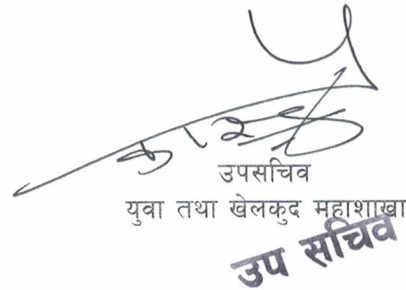 उपसचिव
युवा तथा खेलकुद महाशाखा
उप सचिव